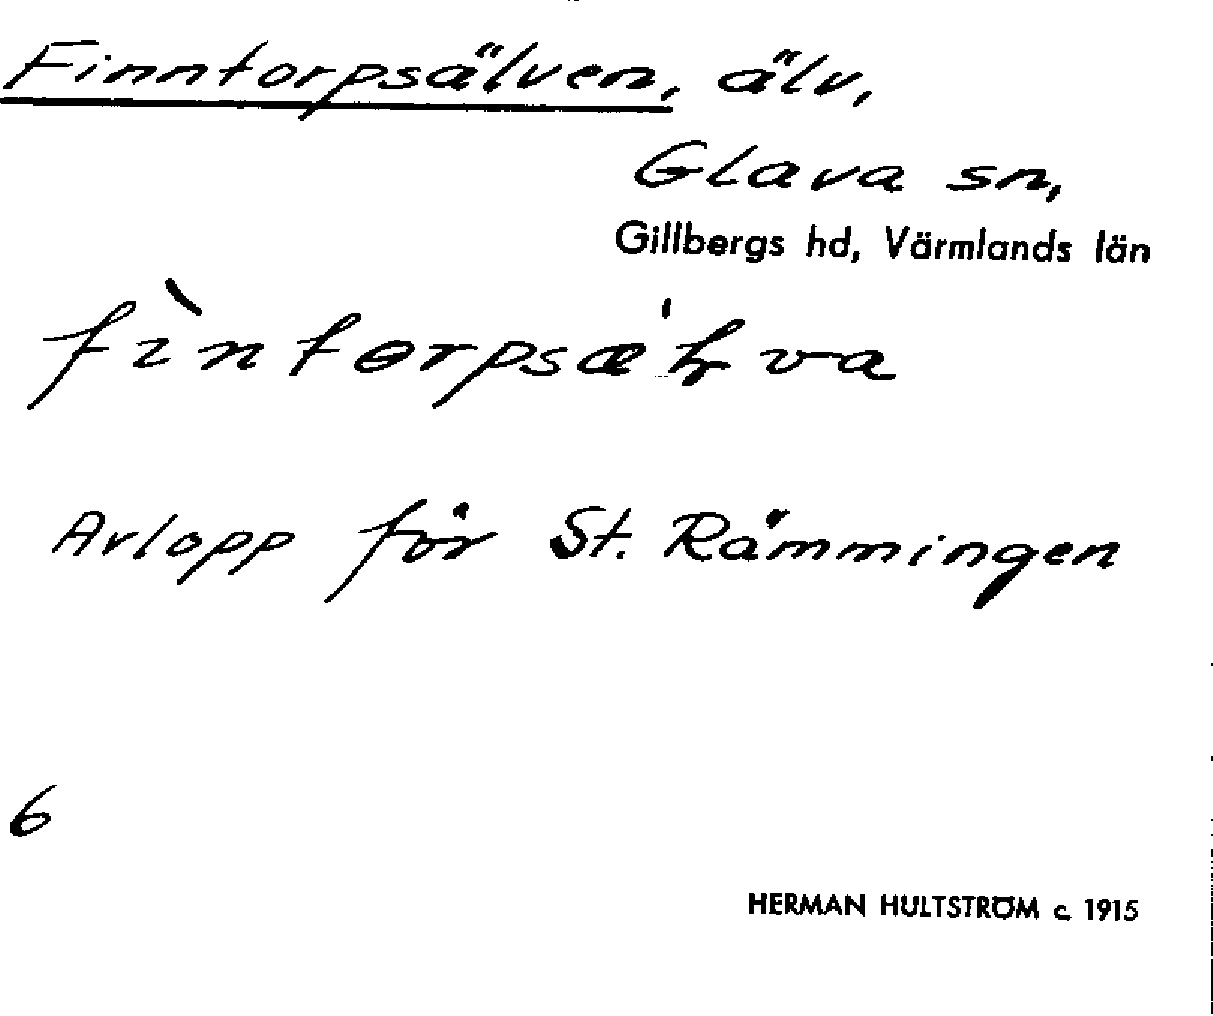 Finntorpsälven, älv,
Glava sn,
Gillbergs hd, Värmlands län
Avlopp för St. Rämmingen
6
HERMAN HULTSTRÖM c. 1915